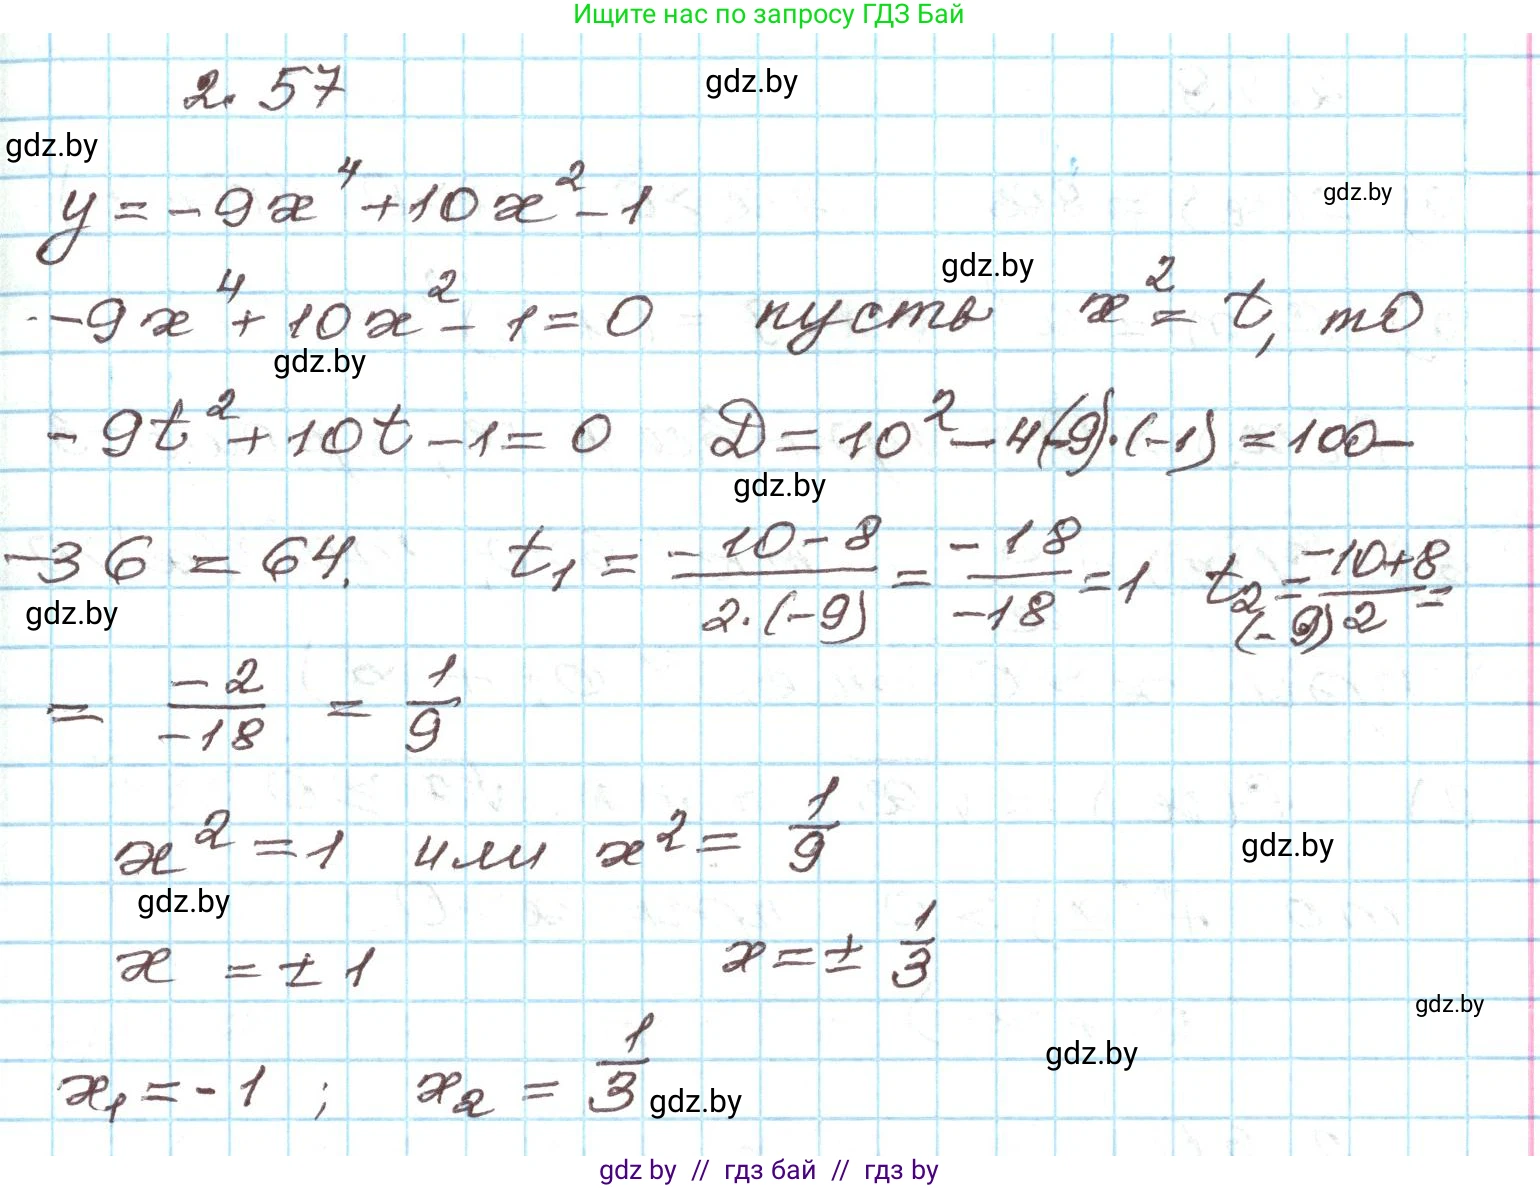 Ищите нас по запросу ГДЗ Бай
2. 57
gdz.by
gdz.by
y = -9x⁴ + 10x² - 1
gdz.by
gdz.by
-9x⁴ + 10x² - 1 = 0 пусть x² = t, то
gdz.by
-9t² + 10t - 1 = 0 D = 10² - 4(-9)·(-1) = 100 -
gdz.by
-36 = 64. t₁ = (-10-8)/(2·(-9)) = (-18)/(-18) = 1 t₂ = (-10+8)/((-9)2) =
gdz.by
= (-2)/(-18) = 1/9
x² = 1 или x² = 1/9
gdz.by
gdz.by
x = ± 1 x = ± 1/3
gdz.by
gdz.by
x₁ = -1 ; x₂ = 1/3
gdz.by
gdz by // гдз бай // гдз by